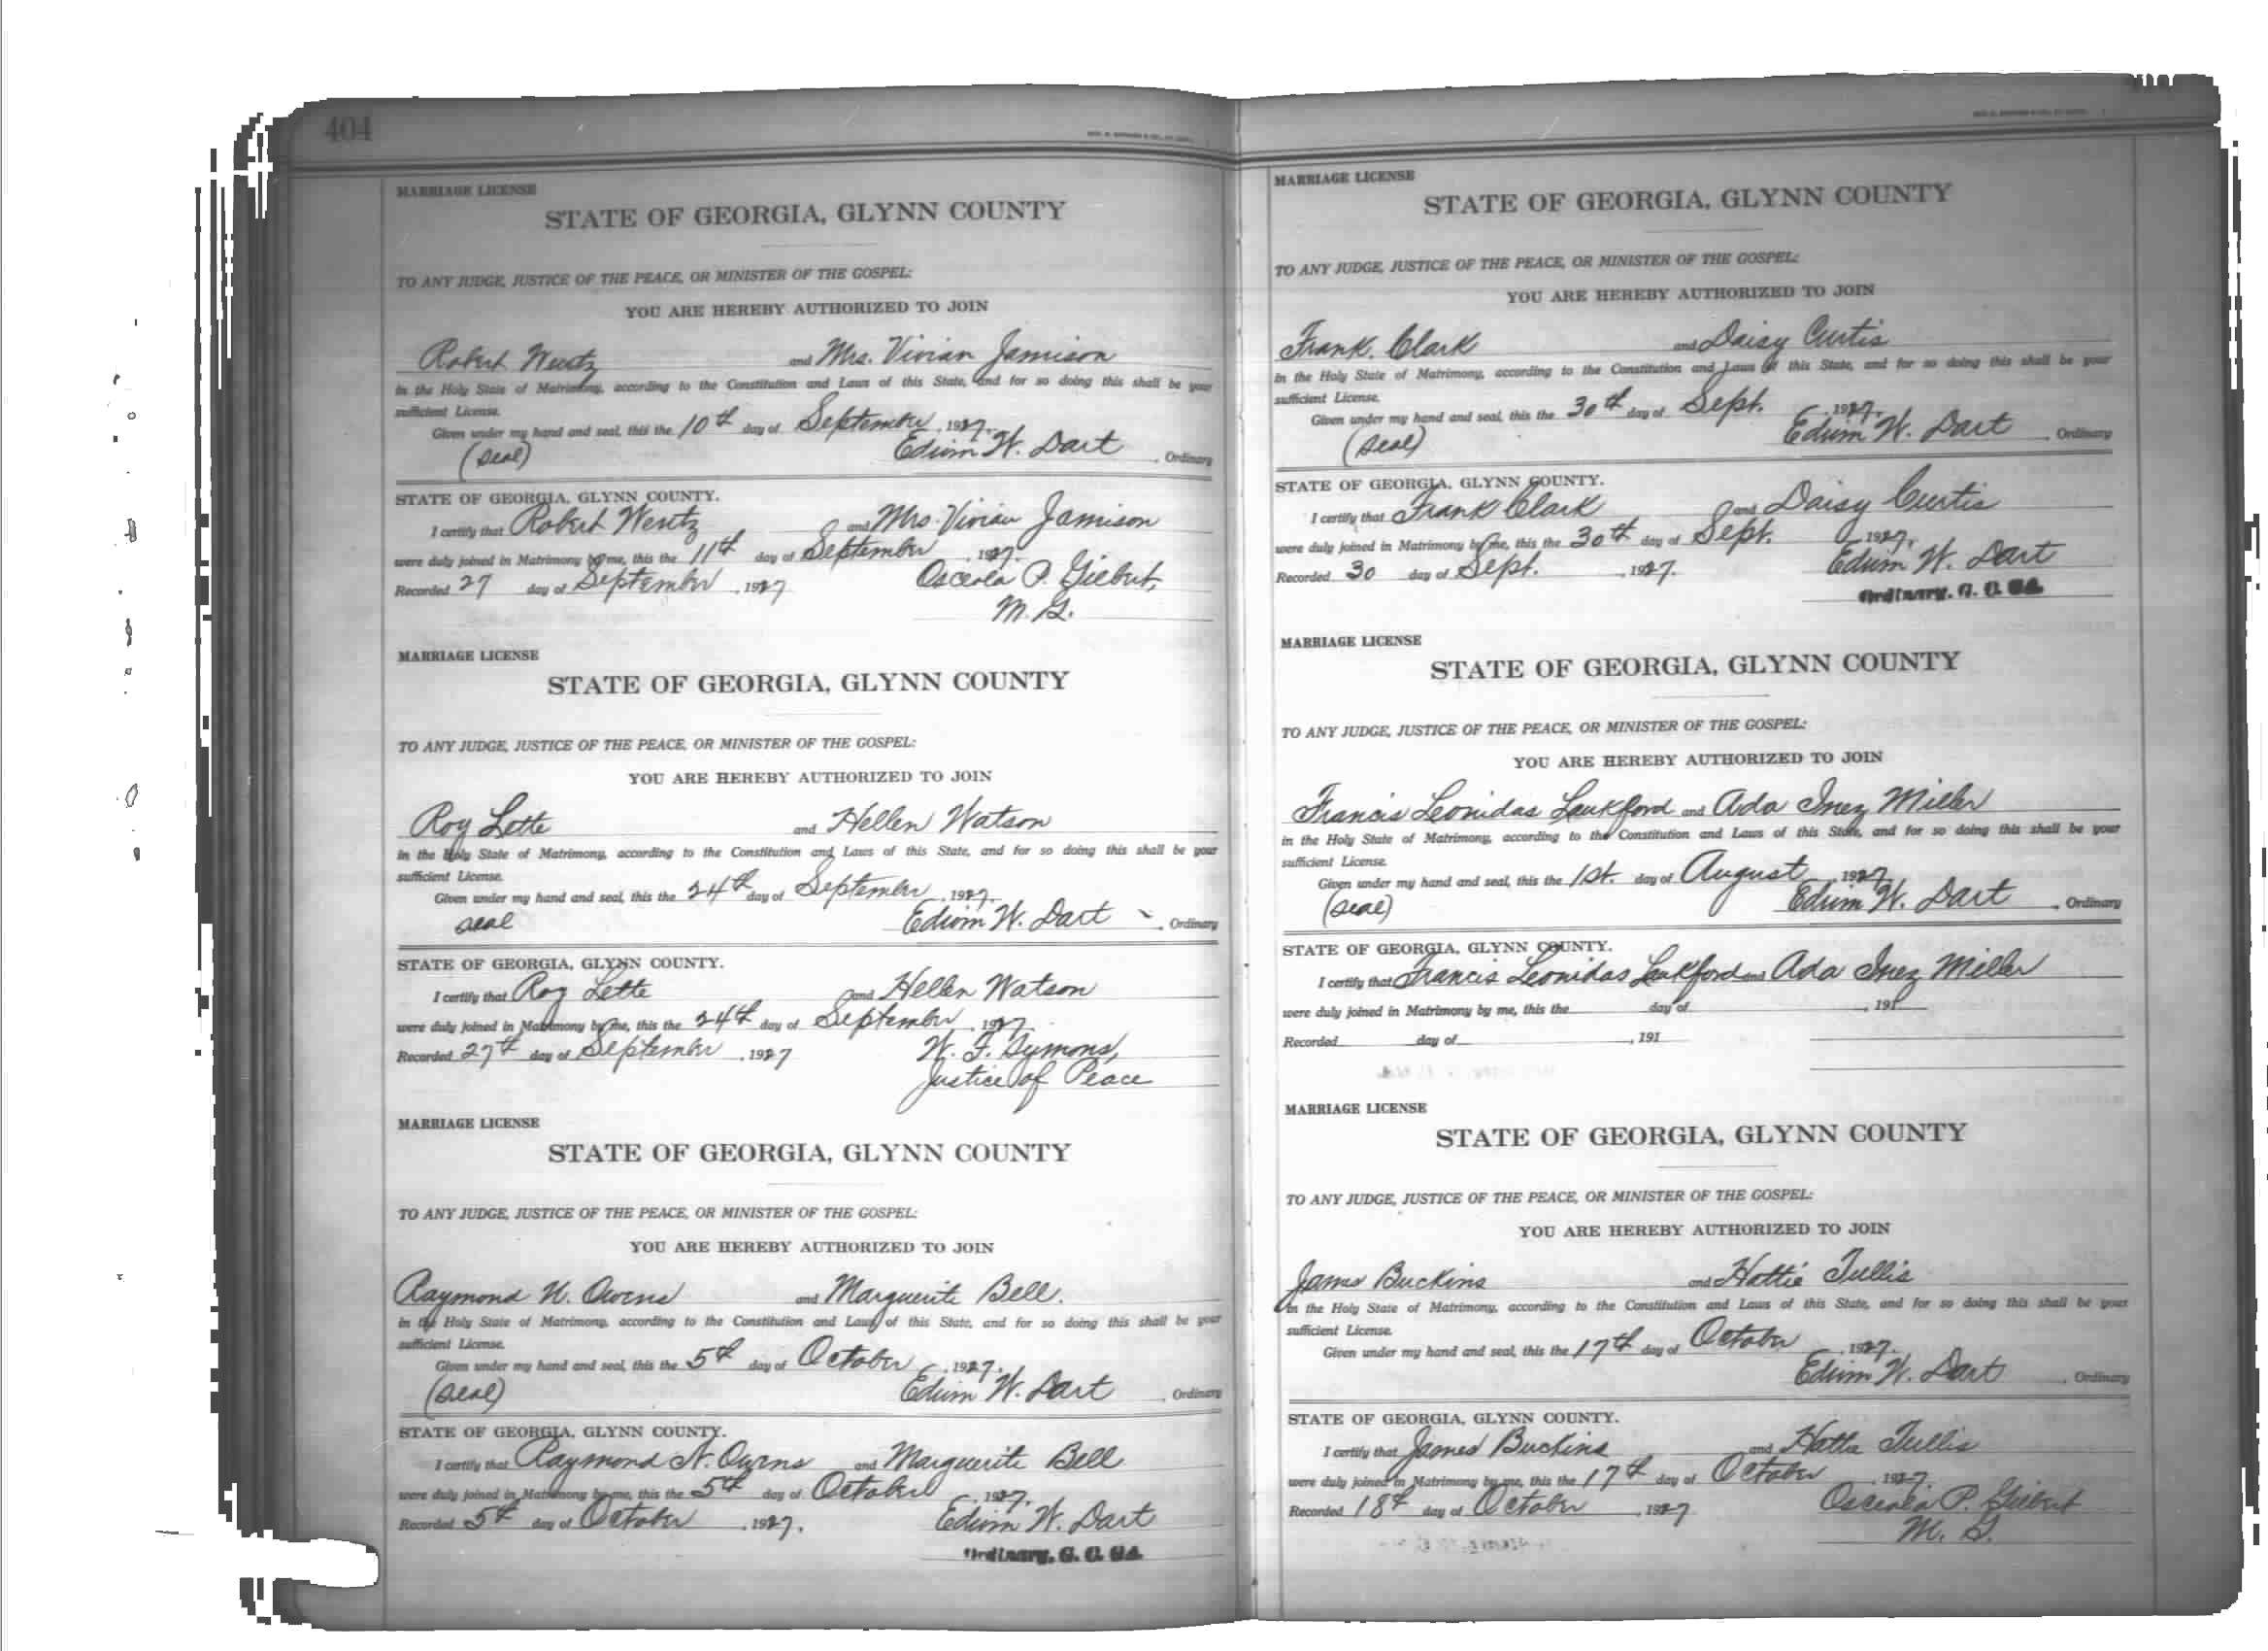 404
MARRIAGE LICENSE
STATE OF GEORGIA, GLYNN COUNTY
TO ANY JUDGE, JUSTICE OF THE PEACE, OR MINISTER OF THE GOSPEL:
YOU ARE HEREBY AUTHORIZED TO JOIN
Robert Wentz and Mrs. Vivian Jamison
in the Holy State of Matrimony, according to the Constitution and Laws of this State, and for so doing this shall be your
sufficient License.
Given under my hand and seal, this the 10th day of September, 1927.
(seal) Edwin W. Dart, Ordinary
STATE OF GEORGIA, GLYNN COUNTY.
I certify that Robert Wentz and Mrs. Vivian Jamison
were duly joined in Matrimony by me, this the 11th day of September, 1927.
Recorded 27 day of September, 1927 Osceola P. Gilbert,
M. G.
MARRIAGE LICENSE
STATE OF GEORGIA, GLYNN COUNTY
TO ANY JUDGE, JUSTICE OF THE PEACE, OR MINISTER OF THE GOSPEL:
YOU ARE HEREBY AUTHORIZED TO JOIN
Roy Lette and Hellen Watson
in the Holy State of Matrimony, according to the Constitution and Laws of this State, and for so doing this shall be your
sufficient License.
Given under my hand and seal, this the 24th day of September, 1927.
seal Edwin W. Dart, Ordinary
STATE OF GEORGIA, GLYNN COUNTY.
I certify that Roy Lette and Hellen Watson
were duly joined in Matrimony by me, this the 24th day of September, 1927.
Recorded 27th day of September, 1927 W. F. Symons,
Justice of Peace
MARRIAGE LICENSE
STATE OF GEORGIA, GLYNN COUNTY
TO ANY JUDGE, JUSTICE OF THE PEACE, OR MINISTER OF THE GOSPEL:
YOU ARE HEREBY AUTHORIZED TO JOIN
Raymond N. Owens and Marguerite Bell.
in the Holy State of Matrimony, according to the Constitution and Laws of this State, and for so doing this shall be your
sufficient License.
Given under my hand and seal, this the 5th day of October, 1927.
(seal) Edwin W. Dart, Ordinary
STATE OF GEORGIA, GLYNN COUNTY.
I certify that Raymond N. Owens and Marguerite Bell
were duly joined in Matrimony by me, this the 5th day of October, 1927.
Recorded 5th day of October, 1927. Edwin W. Dart
Ordinary, G. C. Ga.
MARRIAGE LICENSE
STATE OF GEORGIA, GLYNN COUNTY
TO ANY JUDGE, JUSTICE OF THE PEACE, OR MINISTER OF THE GOSPEL:
YOU ARE HEREBY AUTHORIZED TO JOIN
Frank Clark and Daisy Curtis
in the Holy State of Matrimony, according to the Constitution and Laws of this State, and for so doing this shall be your
sufficient License.
Given under my hand and seal, this the 30th day of Sept., 1927.
(seal) Edwin W. Dart, Ordinary
STATE OF GEORGIA, GLYNN COUNTY.
I certify that Frank Clark and Daisy Curtis
were duly joined in Matrimony by me, this the 30th day of Sept., 1927.
Recorded 30 day of Sept., 1927. Edwin W. Dart
Ordinary, G. C. Ga.
MARRIAGE LICENSE
STATE OF GEORGIA, GLYNN COUNTY
TO ANY JUDGE, JUSTICE OF THE PEACE, OR MINISTER OF THE GOSPEL:
YOU ARE HEREBY AUTHORIZED TO JOIN
Francis Leonidas Lankford and Ada Inez Miller
in the Holy State of Matrimony, according to the Constitution and Laws of this State, and for so doing this shall be your
sufficient License.
Given under my hand and seal, this the 1st. day of August, 1927
(seal) Edwin W. Dart, Ordinary
STATE OF GEORGIA, GLYNN COUNTY.
I certify that Francis Leonidas Lankford and Ada Inez Miller
were duly joined in Matrimony by me, this the day of , 191
Recorded day of , 191
MARRIAGE LICENSE
STATE OF GEORGIA, GLYNN COUNTY
TO ANY JUDGE, JUSTICE OF THE PEACE, OR MINISTER OF THE GOSPEL:
YOU ARE HEREBY AUTHORIZED TO JOIN
James Buckins and Hattie Tullis
in the Holy State of Matrimony, according to the Constitution and Laws of this State, and for so doing this shall be your
sufficient License.
Given under my hand and seal, this the 17th day of October, 1927.
Edwin W. Dart, Ordinary
STATE OF GEORGIA, GLYNN COUNTY.
I certify that James Buckins and Hattie Tullis
were duly joined in Matrimony by me, this the 17th day of October, 1927
Recorded 18th day of October, 1927 Osceola P. Gilbert
M. G.